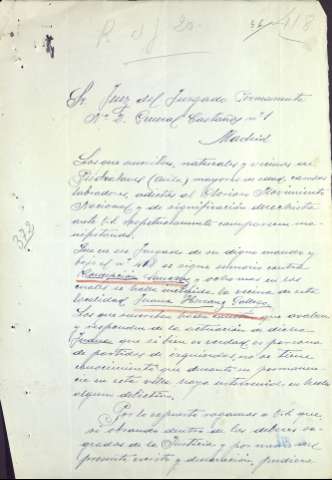 Sr. Juez del Juzgado Permanente
Nº 2. General Castaños nº 1
Madrid
Los que suscriben, naturales y vecinos de
(Avila) mayores de edad, casados
labradores, adictos al Glorioso Movimiento
Nacional y de significación derechista
ante V.S. respetuosamente comparecen y
manifiestan:
Que en ese Juzgado de su digno mando y
bajo el nº se sigue sumario contra
y otros mas en los
cuales se halla la vecina de esta
localidad, Juana Herranz Gallego
Los que suscriben que avalan
y responden de la actuación de dicha
Juana que si bien es verdad, es persona
de partidos de izquierdas, no se tiene
conocimiento que durante su permanen-
cia en esta villa haya intervenido en hecho
algun delictivo.
Por lo expuesto rogamos a V.S. que,
obrando dentro de los deberes sa-
grados de la Justicia y por medio del
presente escrito y declaración, pudiera
373